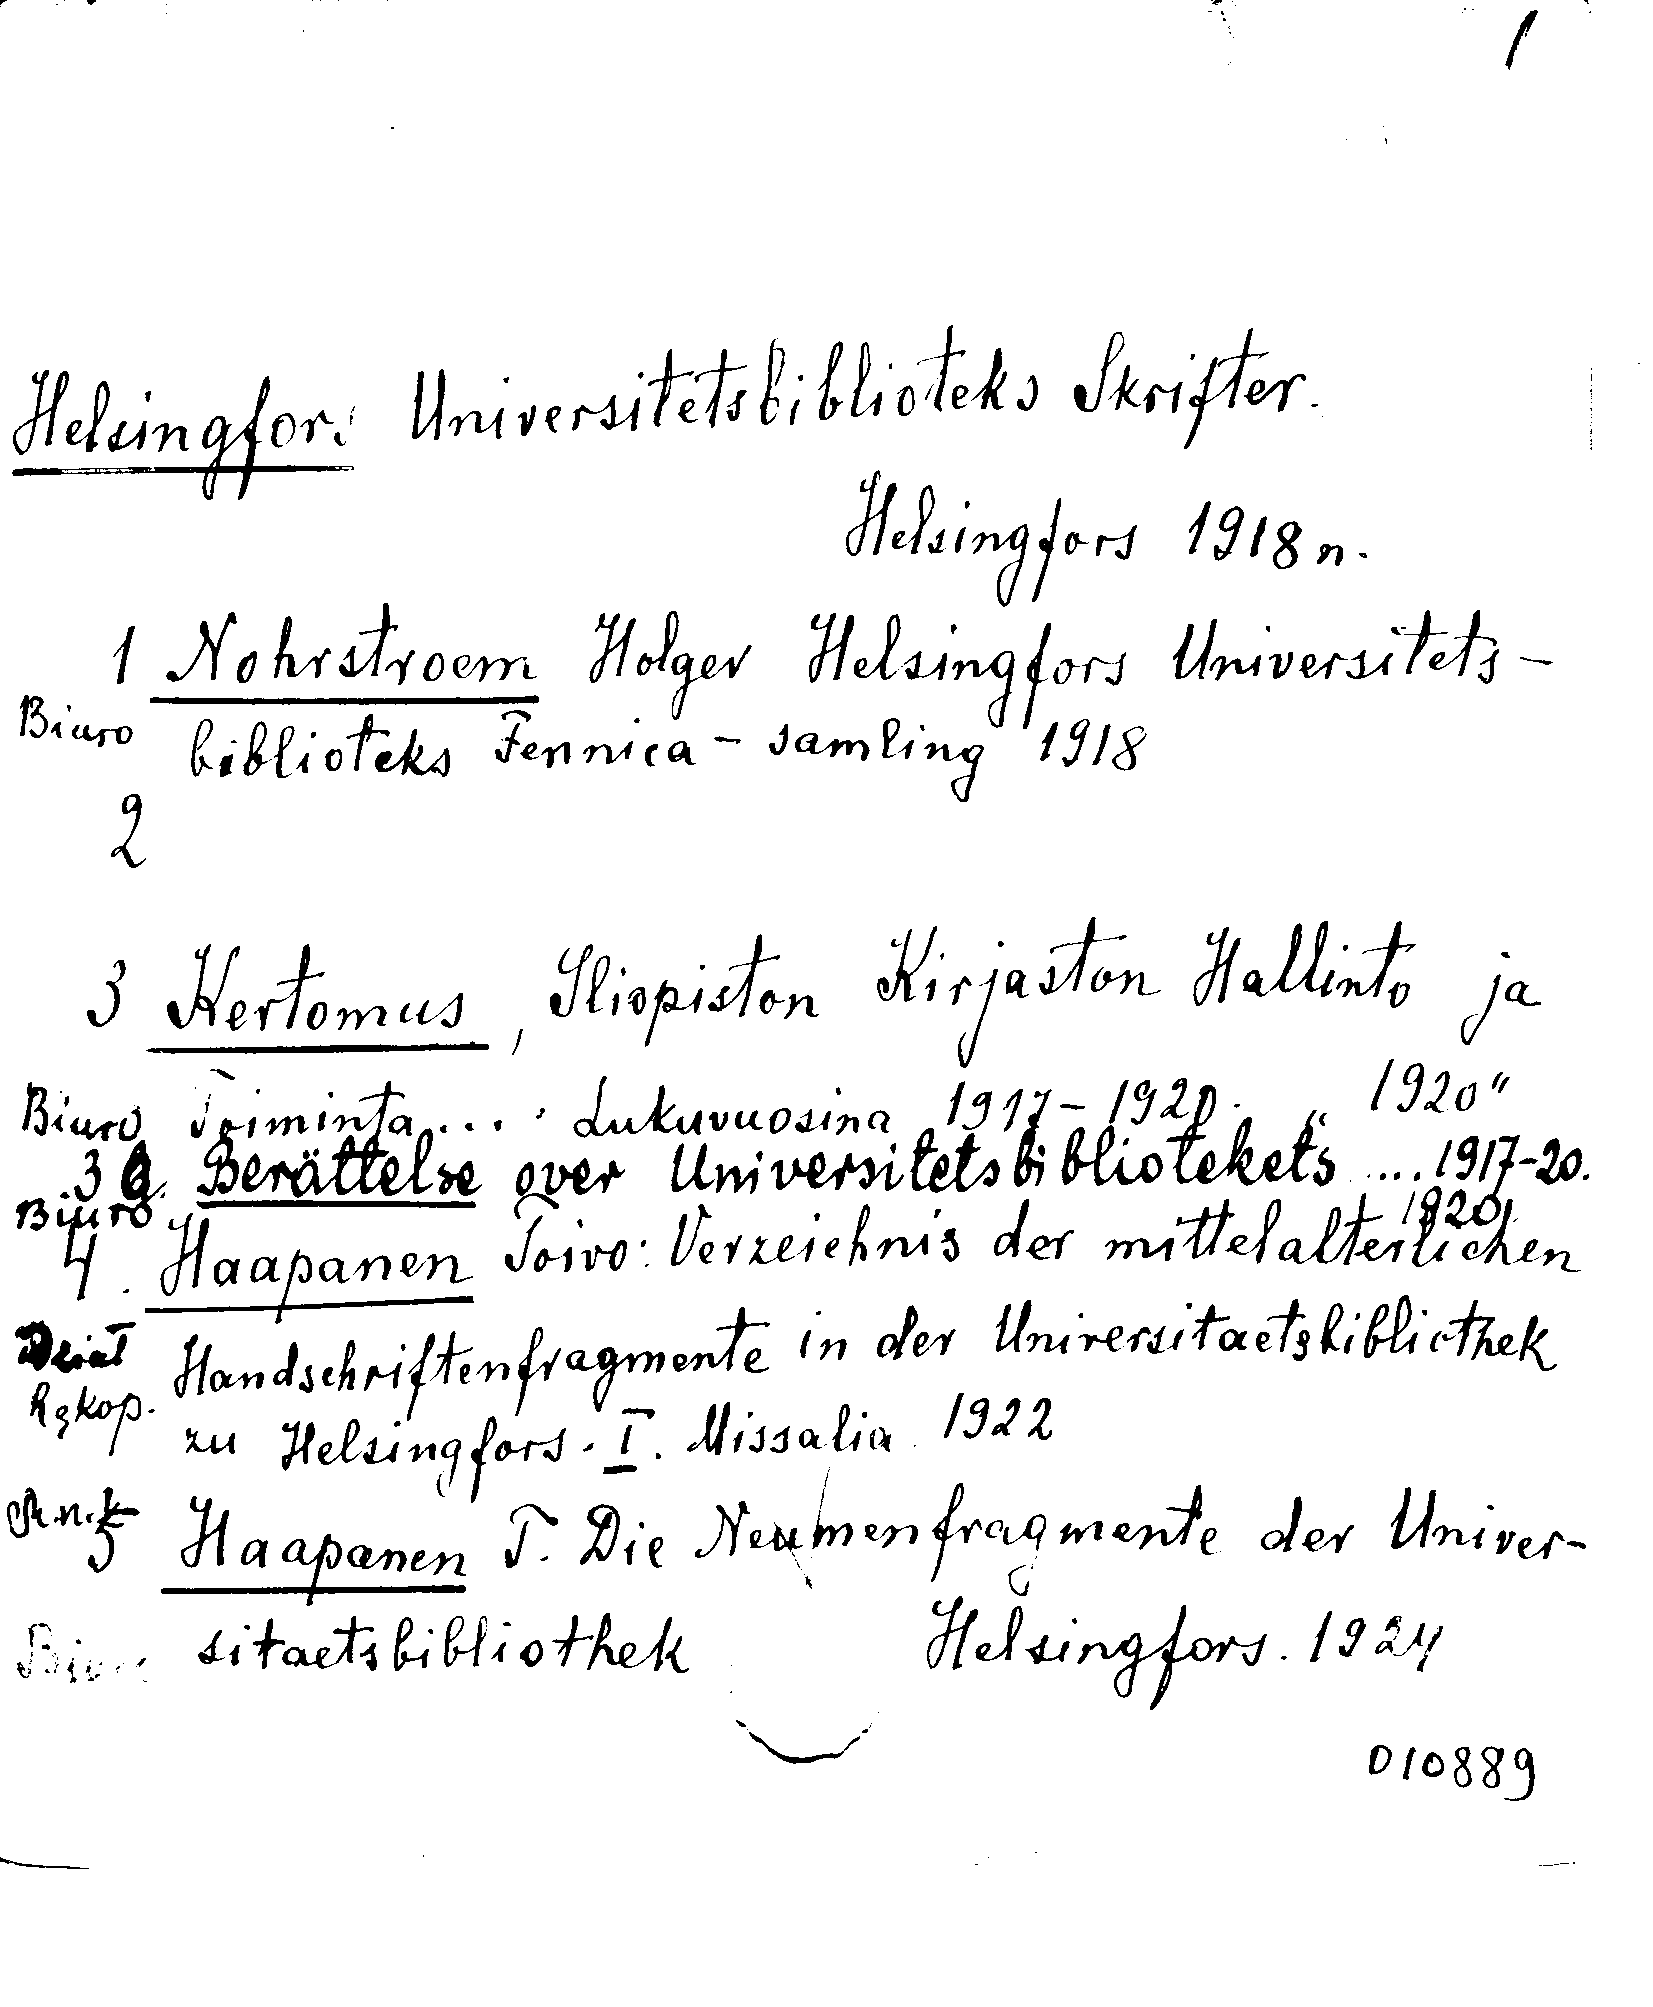 1
Helsingfors Universitetsbiblioteks Skrifter.
Helsingfors 1918 n.
1 Nohrstroem Holger Helsingfors Universitets-
Biuro biblioteks Fennica - samling 1918
2
3 Kertomus, Iliopiston Kirjaston Hallinto ja
Biuro Toiminta.... Lukuvuosina 1917-1920. „ 1920"
3a. Berättelse over Universitetsbibliotekets .... 1917-20.
Biuro 1920.
4. Haapanen Toivo: Verzeichnis der mittelalterlichen
Dział Handschriftenfragmente in der Universitaetsbibliothek
Rękop. zu Helsingfors. I. Missalia 1922
5 Haapanen T. Die Neumenfragmente der Univer-
Biuro sitaetsbibliothek Helsingfors. 1924
010889